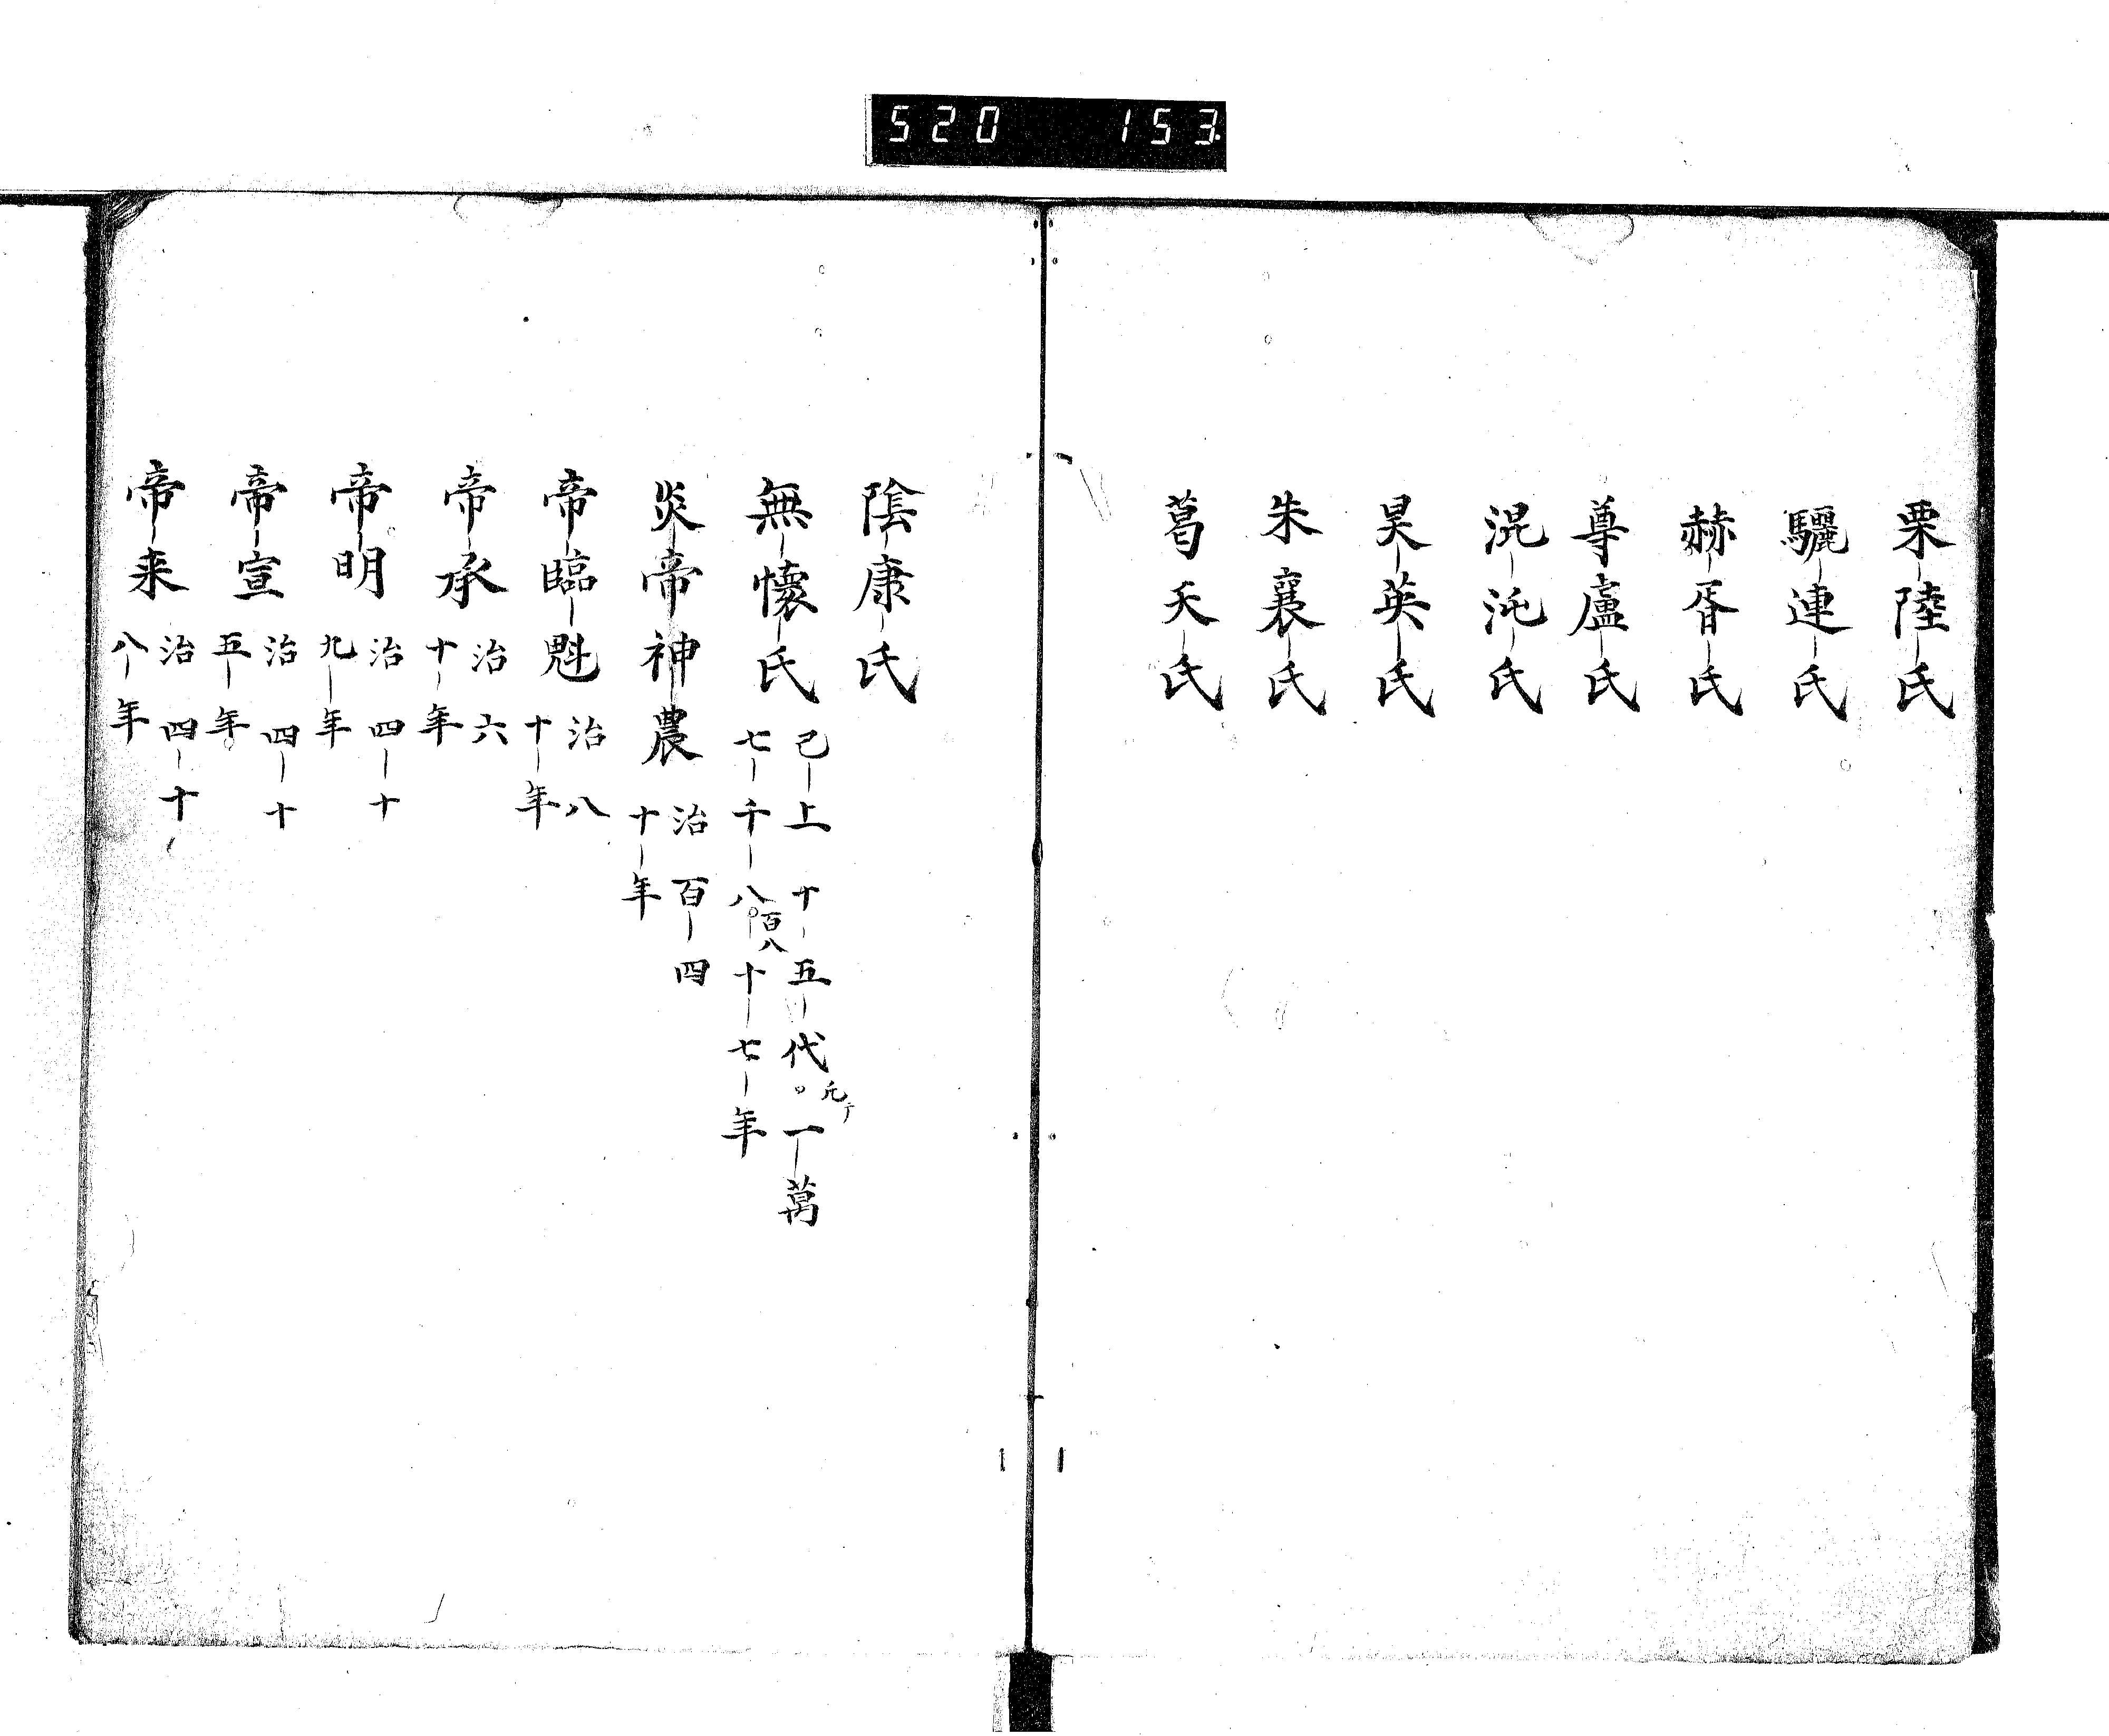 520 153
栗陸氏
驪連氏
赫胥氏
尊盧氏
混沌氏
昊英氏
朱襄氏
葛天氏
陰康氏
無懷氏 已上十五代。一萬
七千八百八十七年
炎帝神農 治百四
十年
帝臨魁 治八
十年
帝承 治六
十年
帝明 治四十
九年
帝宣 治四十
五年
帝来 治四十
八年